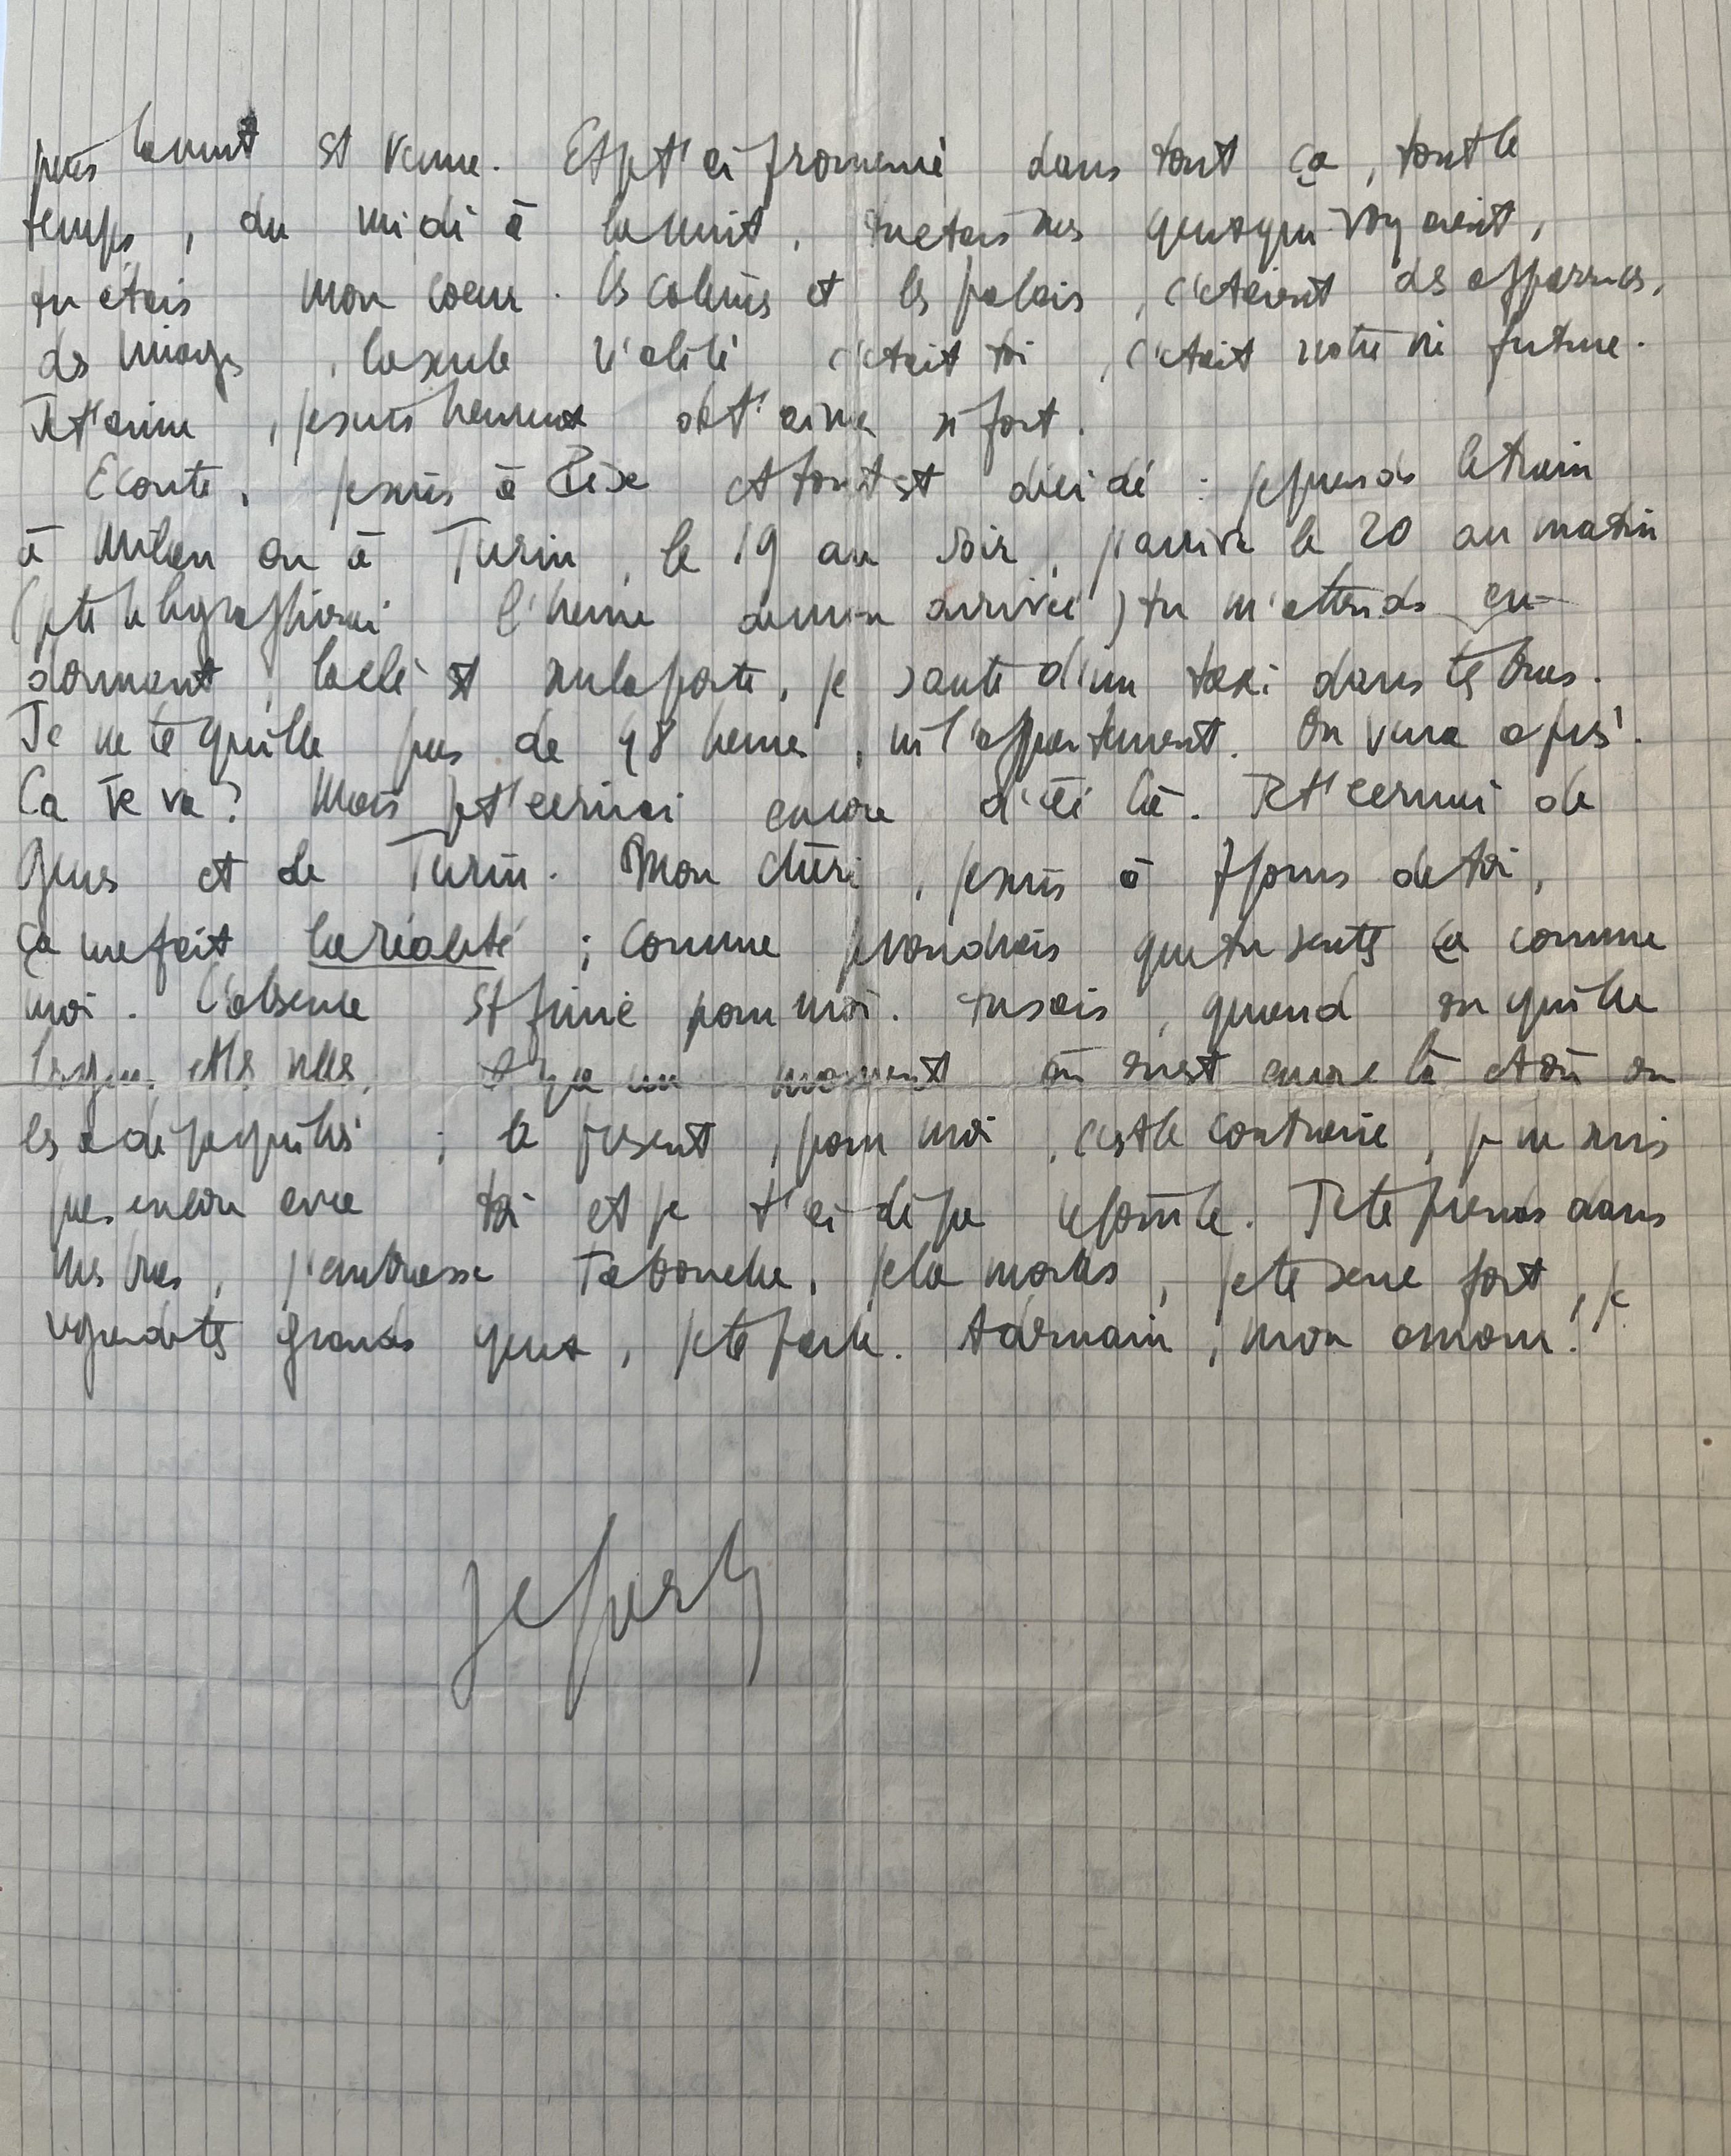 puis la nuit est venue. Et je t'ai promené dans tout ça, tout le
temps, du midi à la nuit, tu étais mes yeux qui voyaient,
tu étais mon coeur. Les collines et les palais, c'étaient des apparences,
des images, la seule réalité c'était toi, c'était notre vie future.
Je t'aime, je suis heureux de t'aimer si fort.
Ecoute, je suis à et tout est décidé : je prends le train
à Milan ou à Turin, le 19 au soir, j'arrive le 20 au matin
(je télégraphierai l'heure de mon arrivée) tu m'attends en
dormant, la clé est sur la porte, je saute d'un taxi dans tes bras.
Je ne te quitte pas de 48 heures, ni l'appartement. On verra après.
Ca te va? Mais je t'écrirai encore d'ici là. Je t'écrirai de
et de Turin. Mon chéri, je suis à 7 jours de toi,
ça me fait la réalité ; comme je voudrais que tu sentes ça comme
moi. L'absence est finie pour moi. tu sais, quand on quitte
les gens et les villes, il y a un moment où on est encore là et où on
les a déjà quittés ; le présent, pour moi, c'est le contraire, je ne suis
pas encore avec toi et je t'ai déjà rejointe. Je te prends dans
mes bras, j'embrasse Ta bouche, je la mords, je te serre fort, je
regarde tes grands yeux, je te parle. A demain, mon amour!